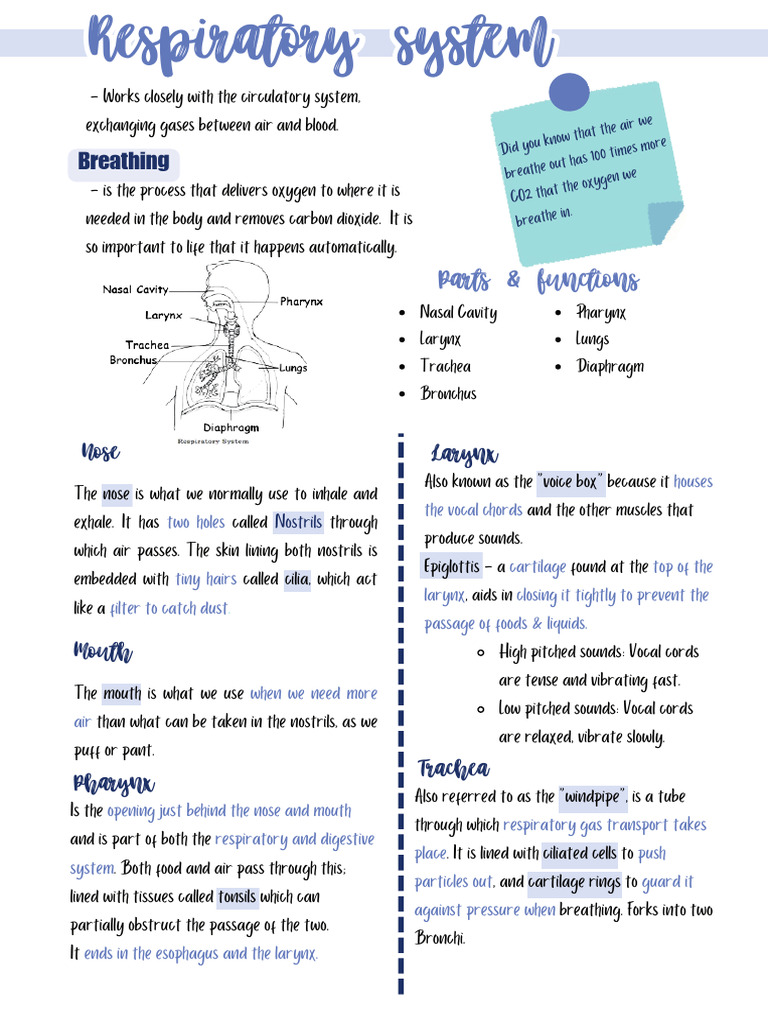 Respiratory system
- Works closely with the circulatory system,
exchanging gases between air and blood.
Breathing
- is the process that delivers oxygen to where it is
needed in the body and removes carbon dioxide. It is
so important to life that it happens automatically.
Did you know that the air we
breathe out has 100 times more
CO2 that the oxygen we
breathe in.
Nasal Cavity
Pharynx
Larynx
Trachea
Bronchus
Lungs
Diaphragm
Respiratory System
Parts & functions
• Nasal Cavity
• Larynx
• Trachea
• Bronchus
• Pharynx
• Lungs
• Diaphragm
Nose
The nose is what we normally use to inhale and
exhale. It has two holes called Nostrils through
which air passes. The skin lining both nostrils is
embedded with tiny hairs called cilia, which act
like a filter to catch dust.
Mouth
The mouth is what we use when we need more
air than what can be taken in the nostrils, as we
puff or pant.
Pharynx
Is the opening just behind the nose and mouth
and is part of both the respiratory and digestive
system. Both food and air pass through this;
lined with tissues called tonsils which can
partially obstruct the passage of the two.
It ends in the esophagus and the larynx.
Larynx
Also known as the "voice box" because it houses
the vocal chords and the other muscles that
produce sounds.
Epiglottis - a cartilage found at the top of the
larynx, aids in closing it tightly to prevent the
passage of foods & liquids.
○ High pitched sounds: Vocal cords
are tense and vibrating fast.
○ Low pitched sounds: Vocal cords
are relaxed, vibrate slowly.
Trachea
Also referred to as the "windpipe", is a tube
through which respiratory gas transport takes
place. It is lined with ciliated cells to push
particles out, and cartilage rings to guard it
against pressure when breathing. Forks into two
Bronchi.